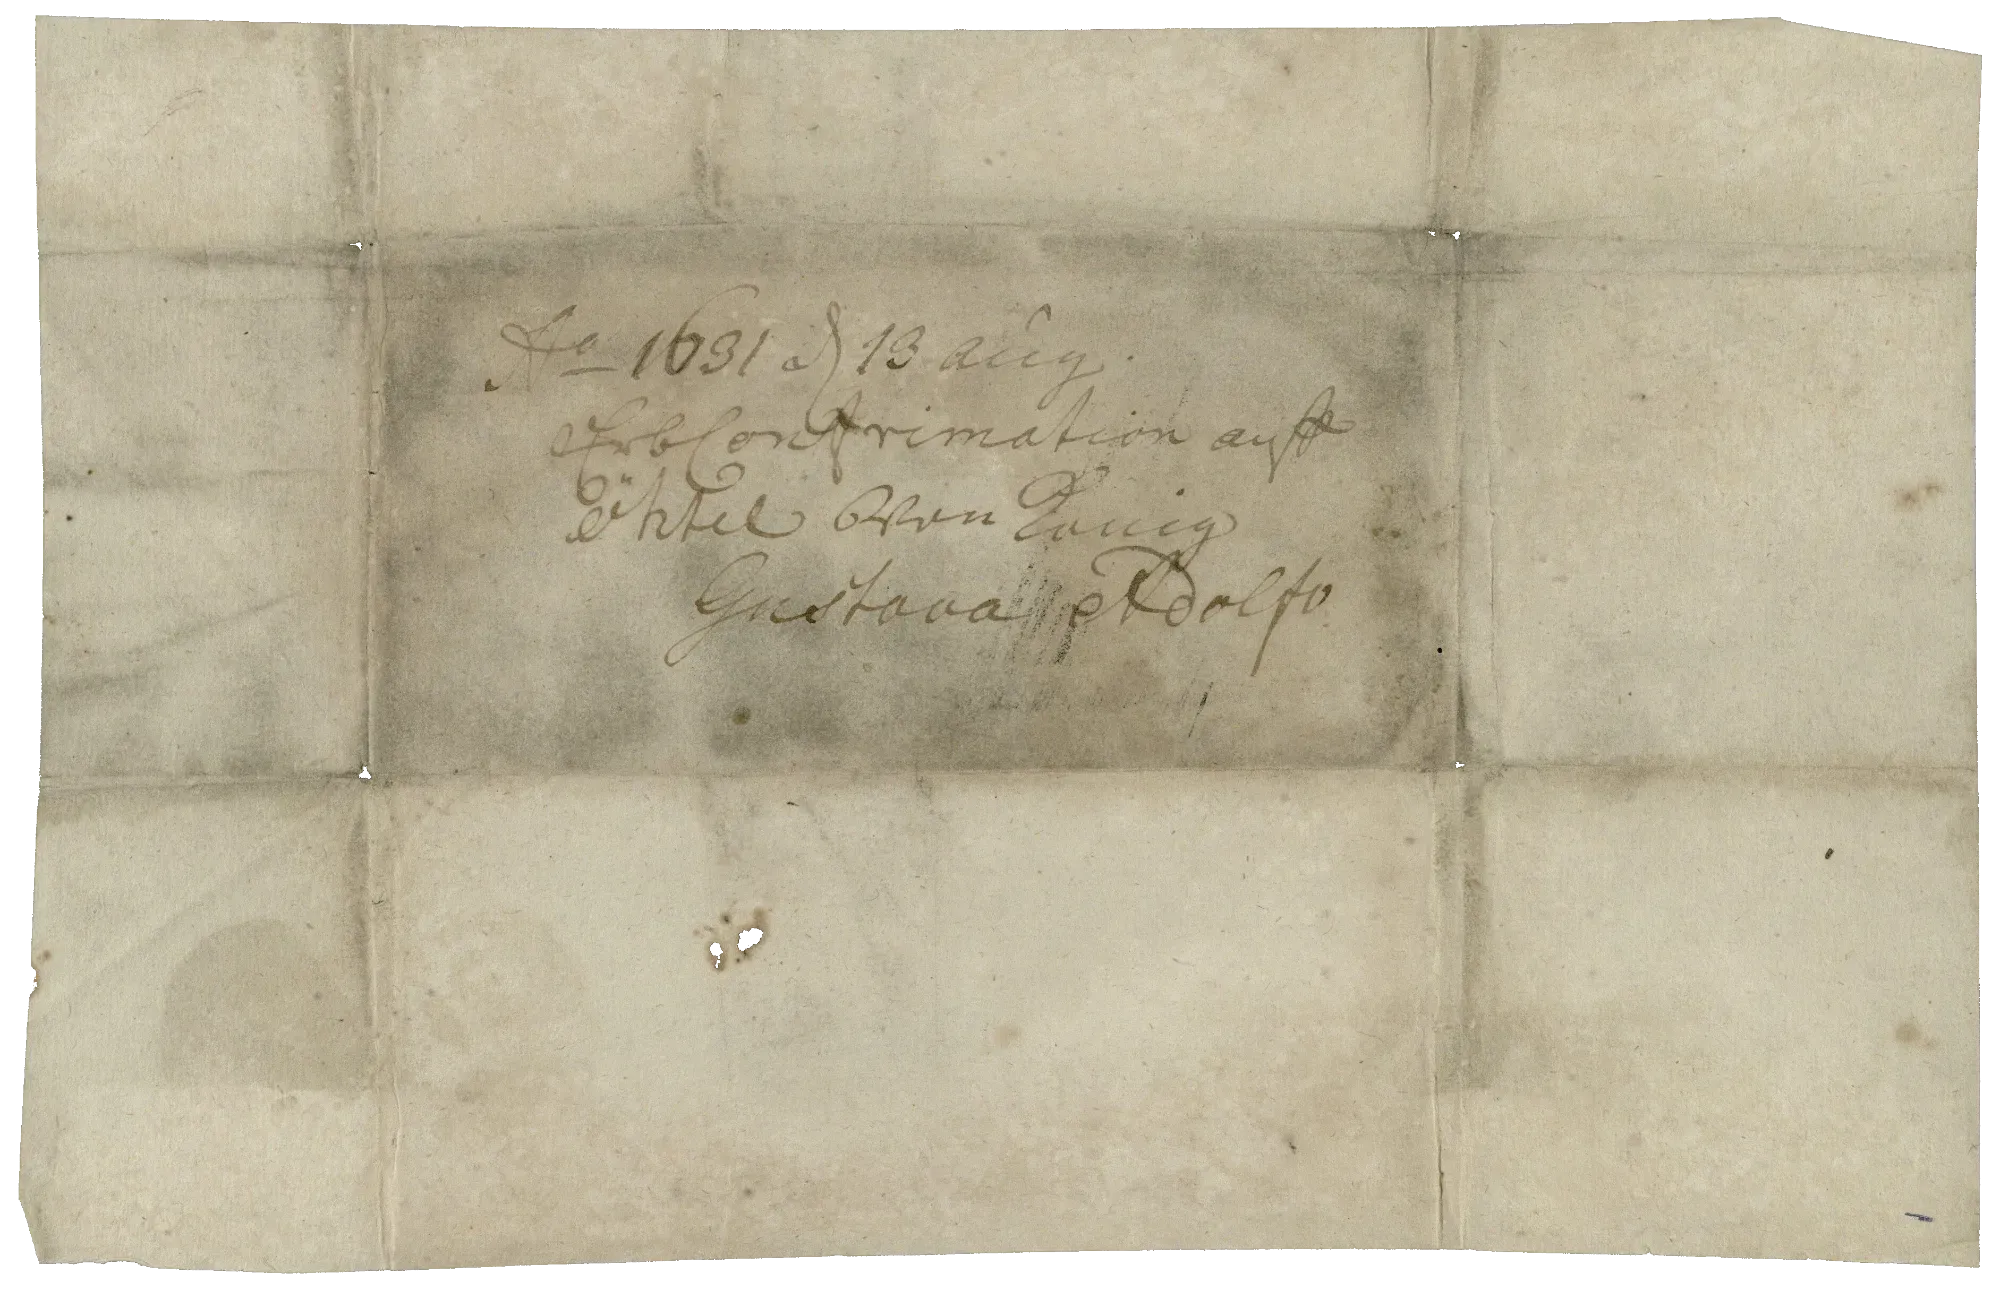 Ao 1631 d 13 aug.
ErbConfirimation auff
Öhtel von König
Gustava Adolfo